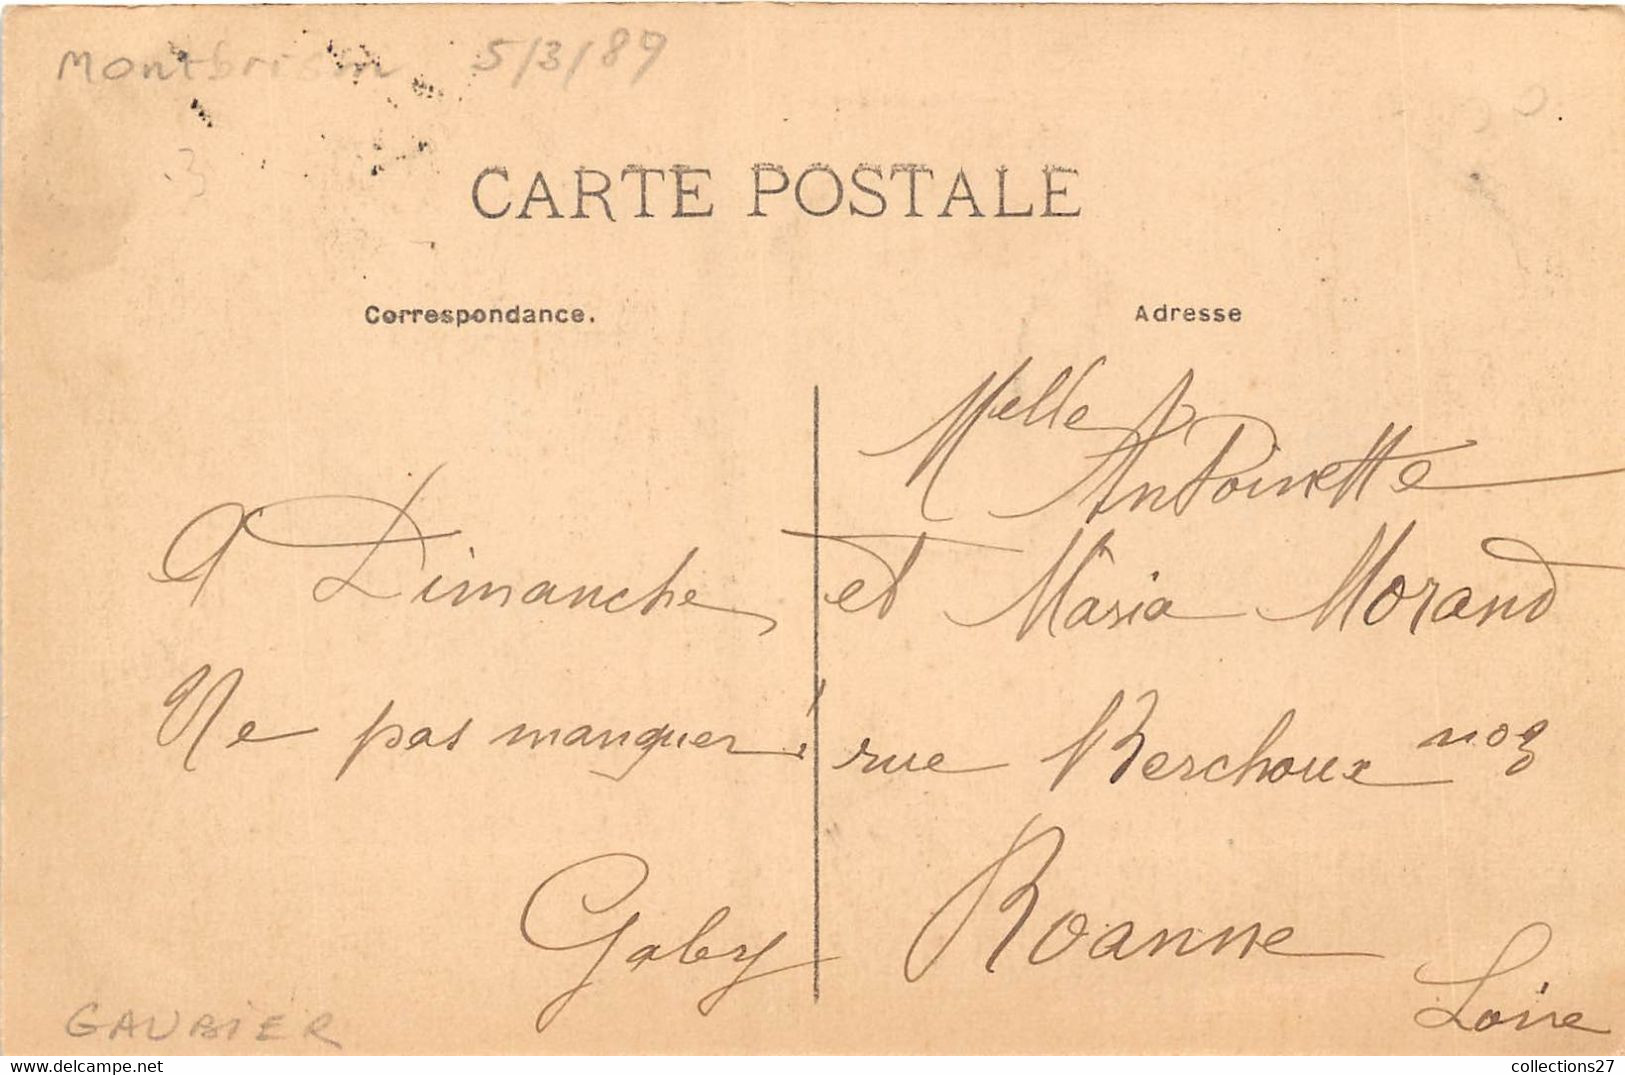 Montbrison 5/3/89
CARTE POSTALE
Correspondance.
Adresse
A Dimanche,
Ne pas manquer!
Gaby
Melle
Antoinette
et Maria Morand
rue Berchoux no 3
Roanne
Loire
GAUBIER
collections27